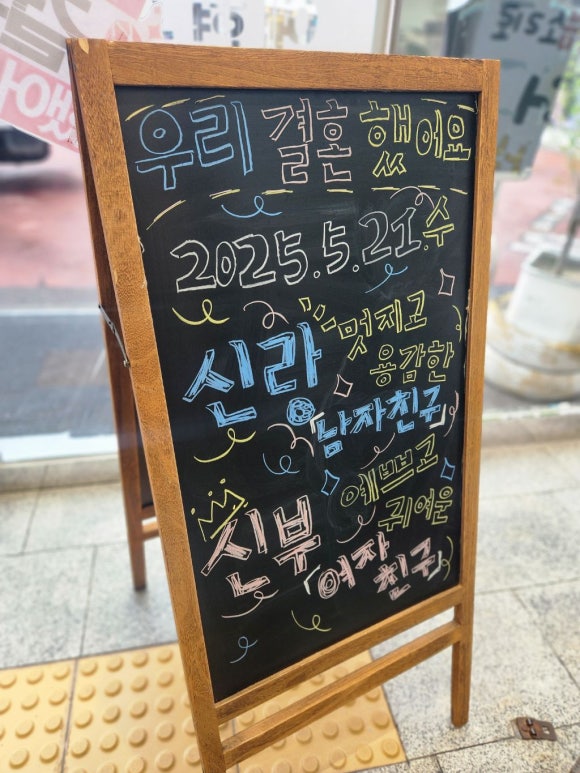 우리 결혼 했어요
2025.5.21.수
신랑 멋재고
용감한
「남자친구」
신부 예쁘고
귀여운
「여자
친구」